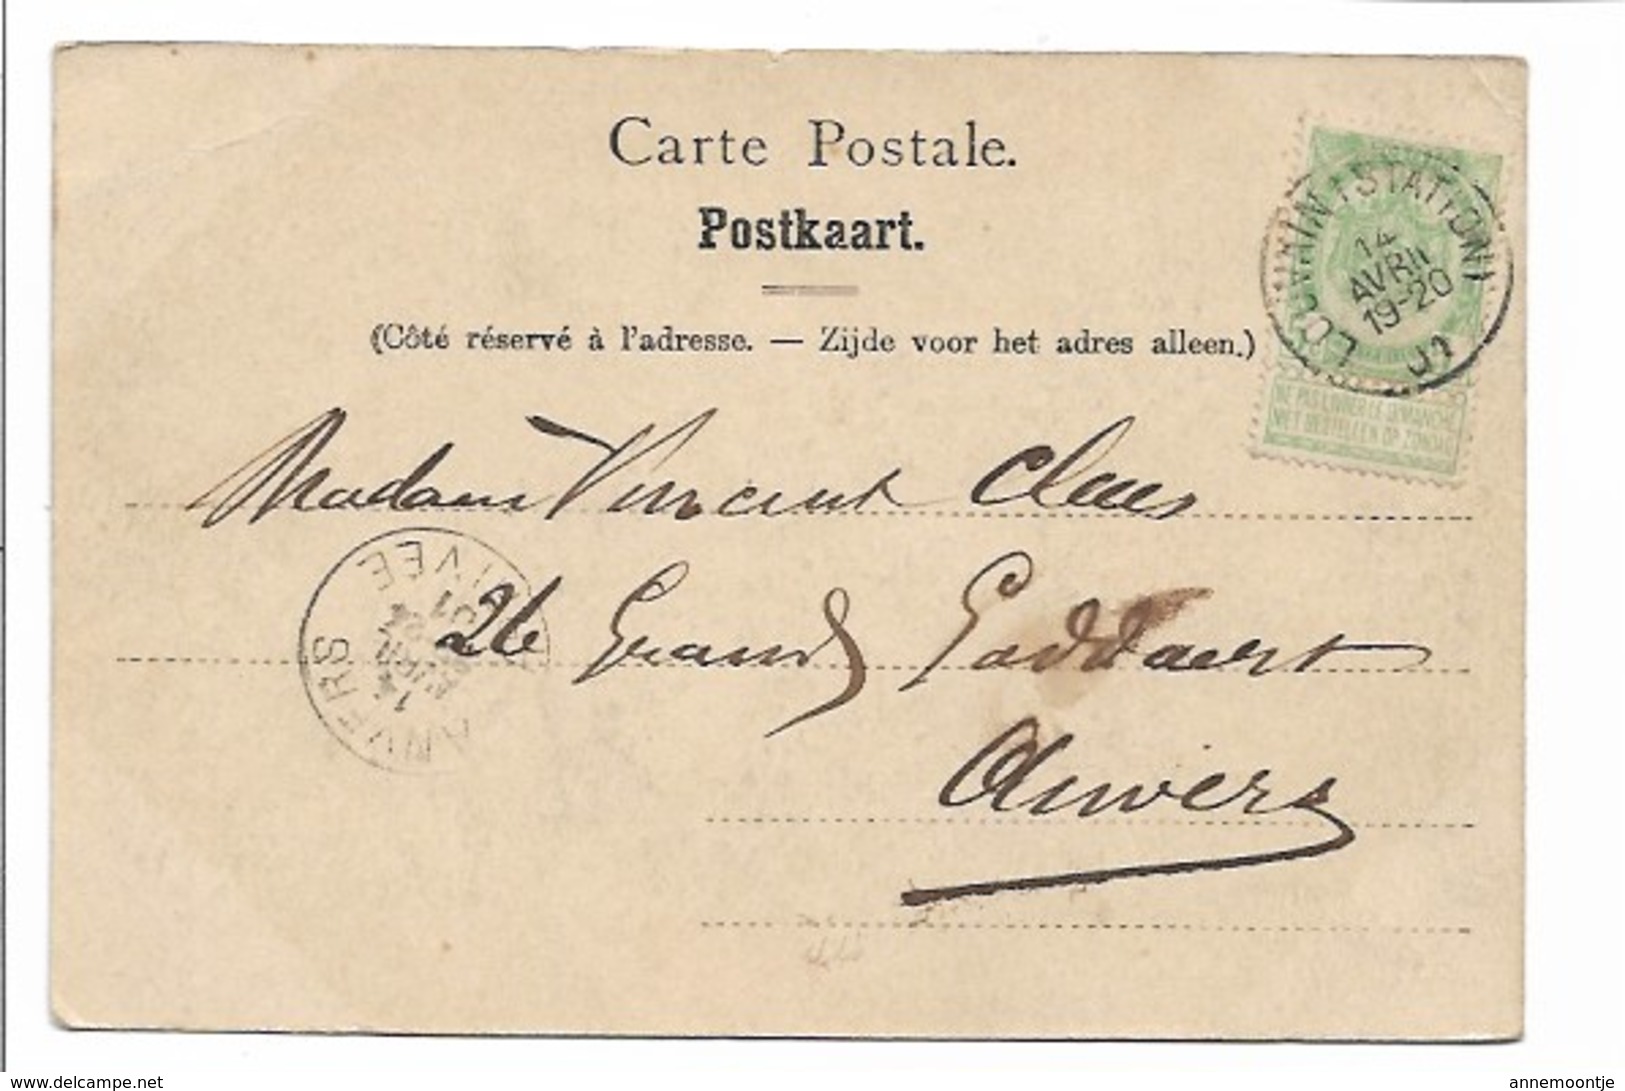 Carte Postale.
Postkaart.
(Côté réservé à l'adresse. — Zijde voor het adres alleen.)
LOUVAIN (STATION)
14
AVRIL
19-20
01
NE PAS LIVRER LE DIMANCHE
NIET BESTELLEN OP ZONDAG
Madame Vincent Claes
26 Grand Goddaert
Anvers
ANVERS
ARRIVÉE
www.delcampe.net
annemoontje